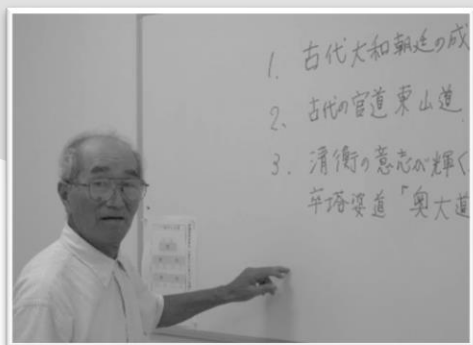 1. 古代大和朝廷の成
2. 古代の官道東山道
3. 清衡の意志が輝く
卒塔婆道「奥大道